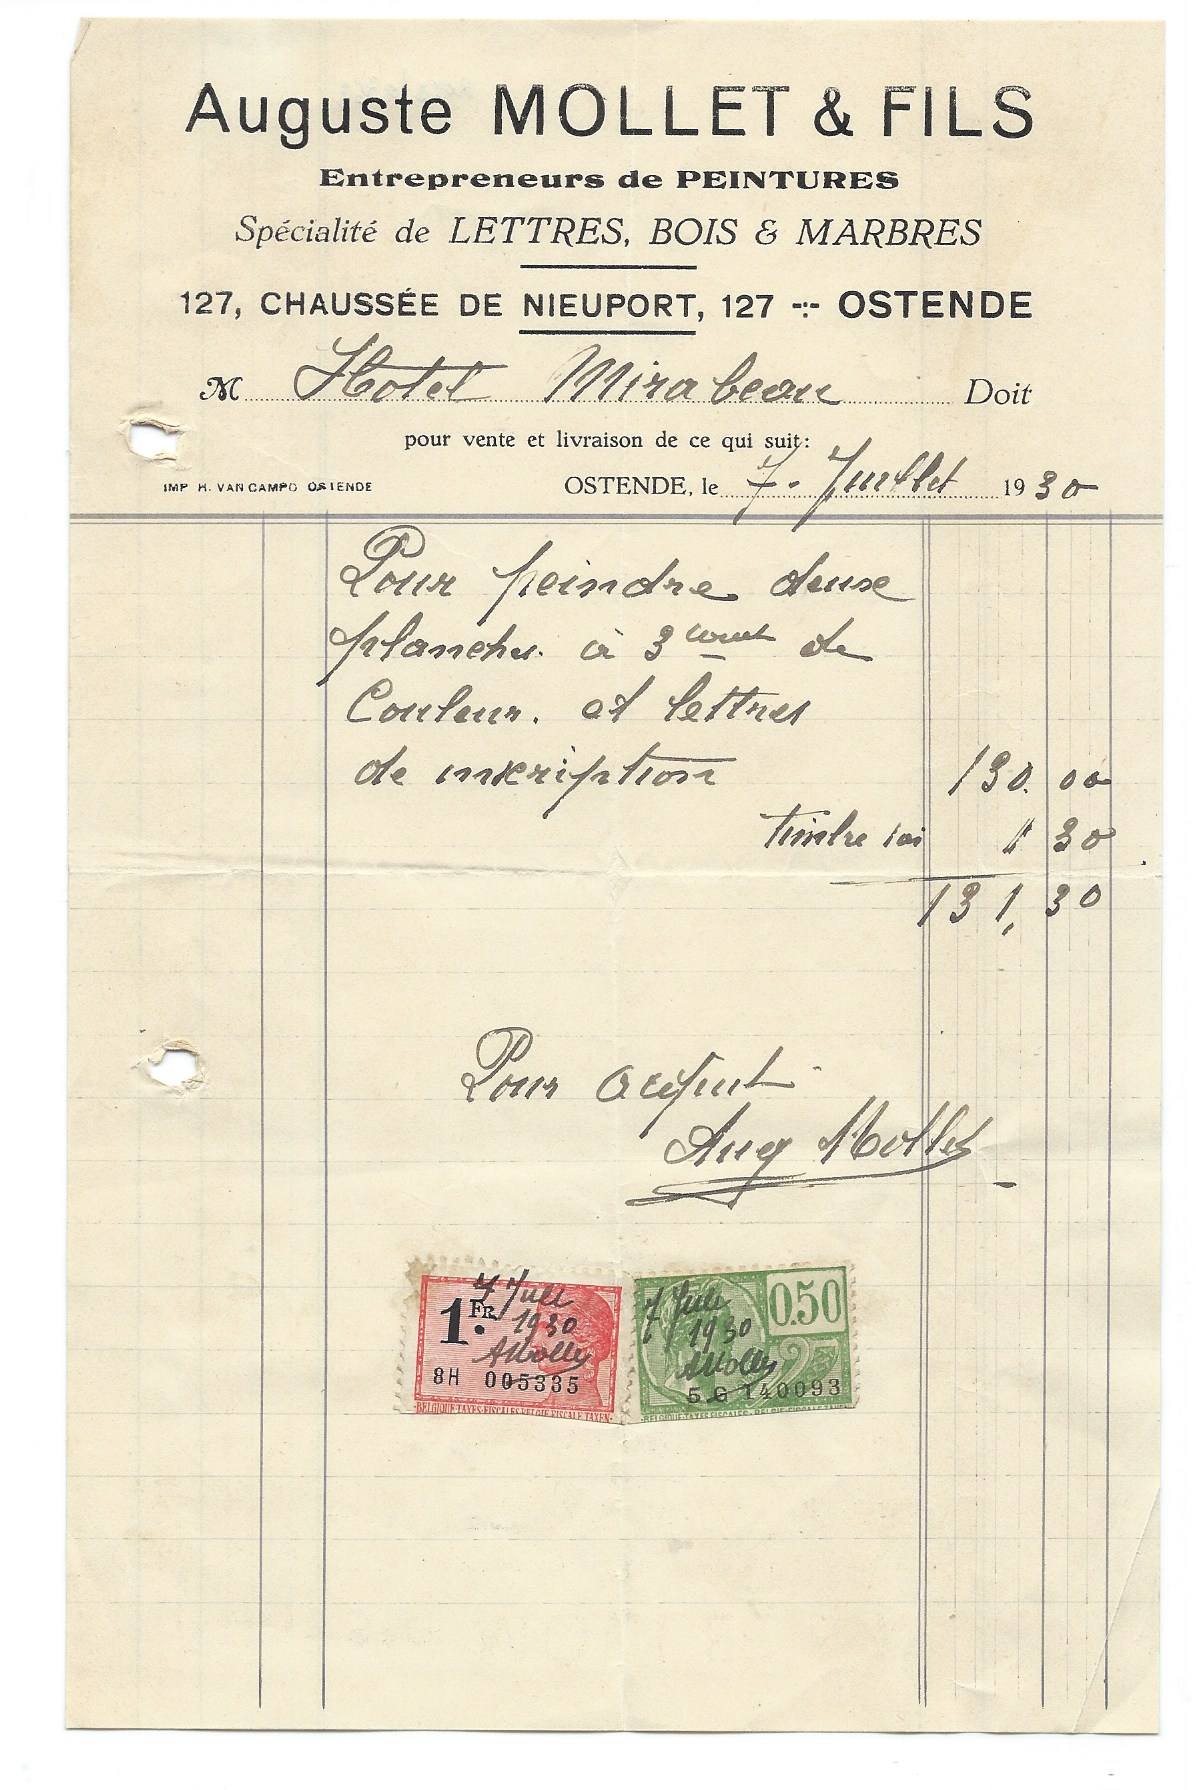 Auguste MOLLET & FILS
Entrepreneurs de PEINTURES
Spécialité de LETTRES, BOIS & MARBRES
127, CHAUSSÉE DE NIEUPORT, 127 -:- OSTENDE
M Hotel Mirabeau Doit
pour vente et livraison de ce qui suit:
IMP H. VAN CAMPO OSTENDE
OSTENDE, le 7. Juillet 1930
Pour peindre deuse
planches. à 3 couct de
Couleur. et lettres
de inscription 130.00
timbre 1 30
131,30
Pour acquit
Aug Mollet
7 Juli
1 FR. 1930
AMollet
8H 005335
BELGIQUE-TAXES-FISCALES-BELGIE-FISCALE TAXEN
7 Juli 0.50
1930
AMollet
5 G 140093
BELGIQUE-TAXES-FISCALES-BELGIE-FISCALE-TAXEN